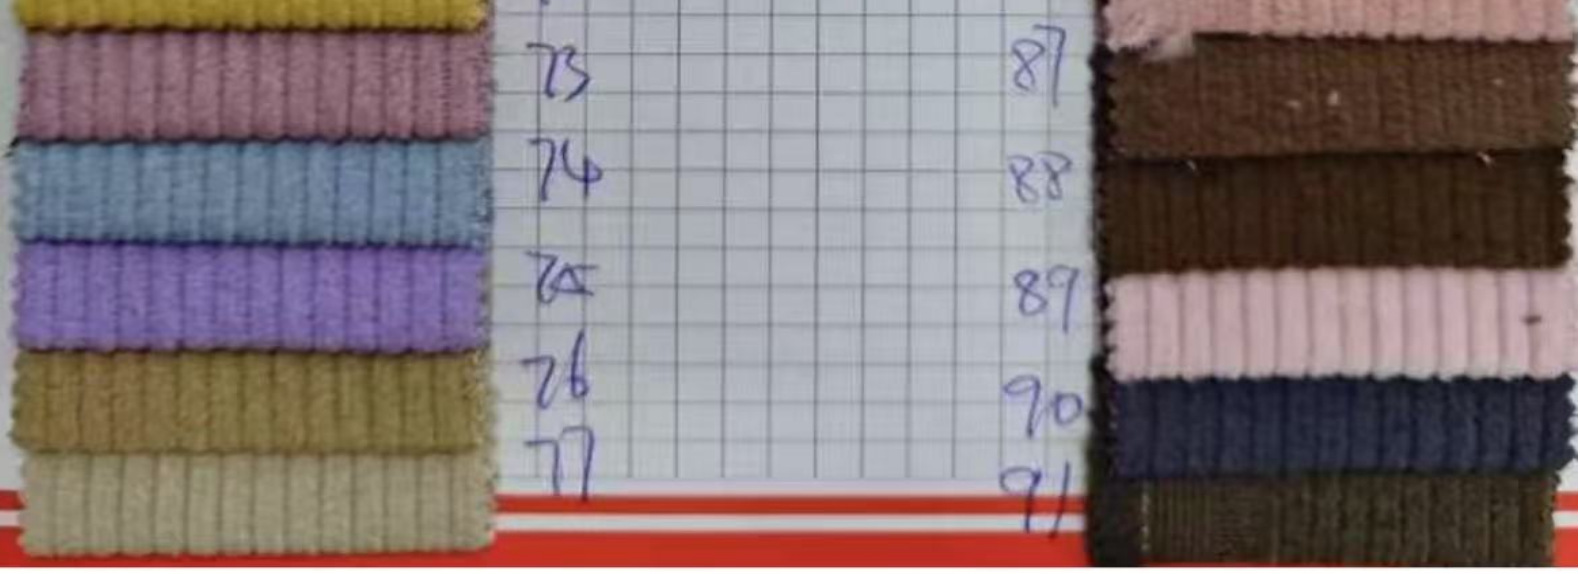 73
74
75
76
77
87
88
89
90
91